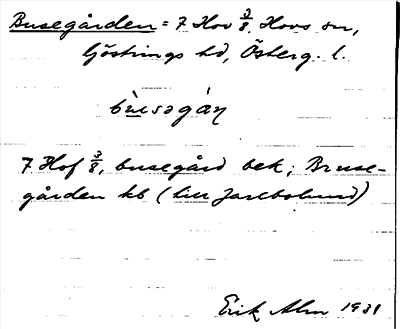 Busegården = 7 Hov 3/8 Hovs sn,
Göstrings hd, Österg. l.
bùsəgáṇ
7 Hof 3/8, busegård bek; Bruse-
gården kb (till Jarlbolund)
Erik Alm 1931